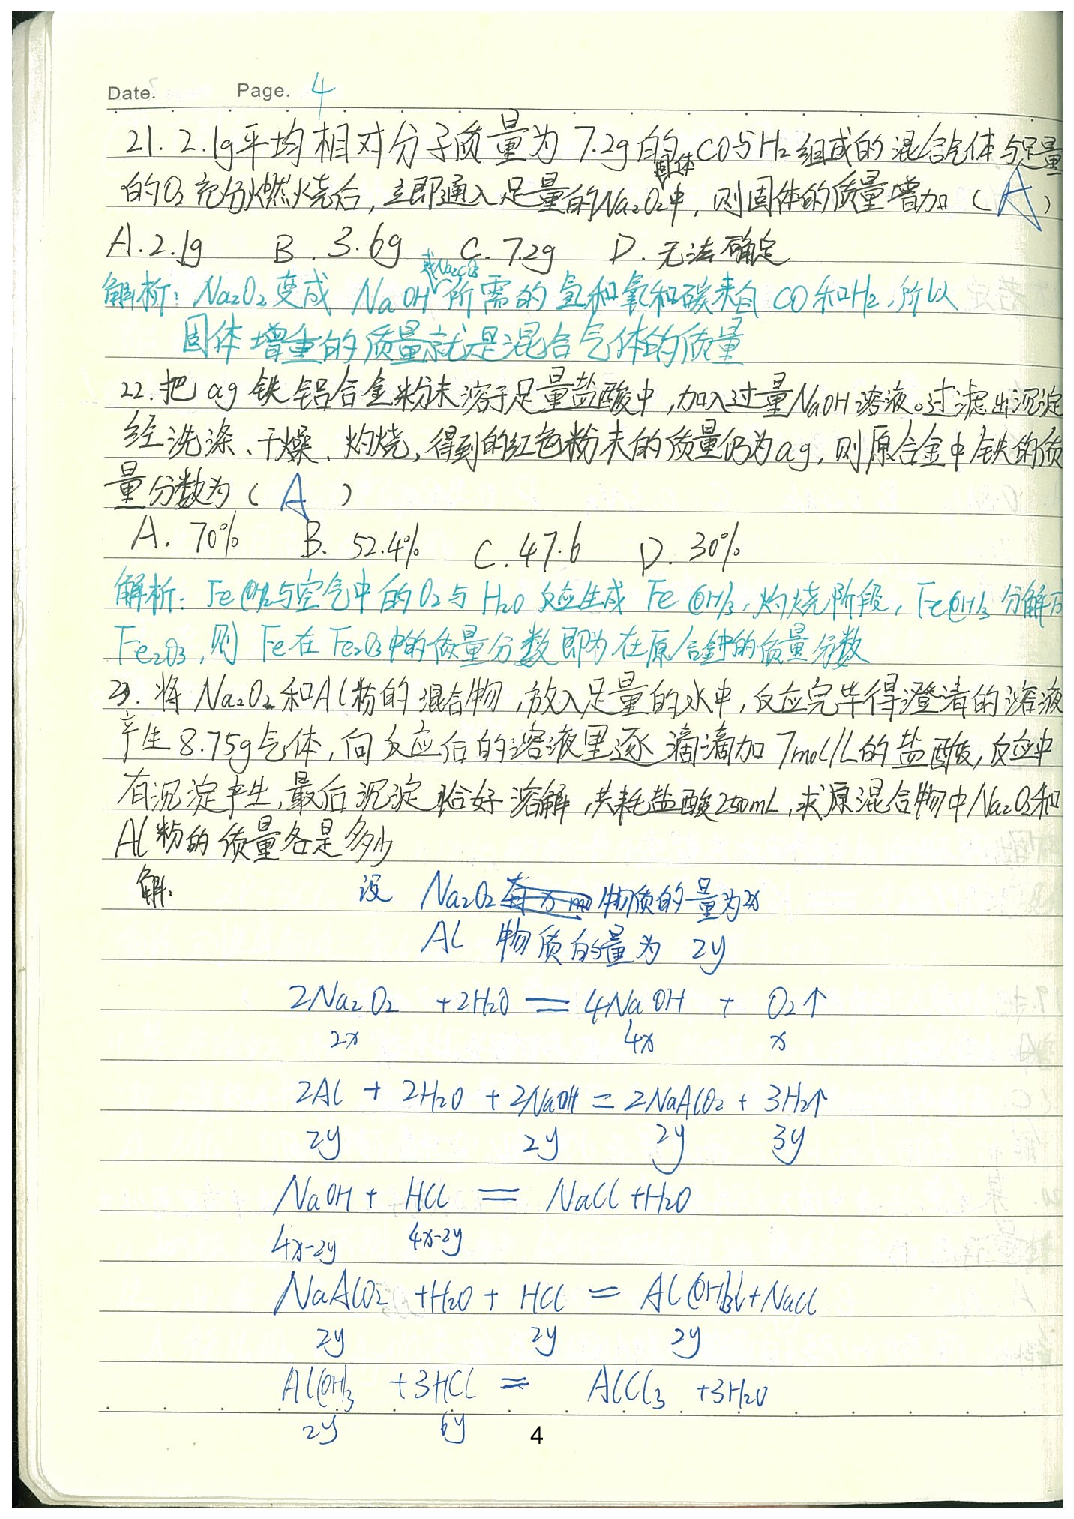 Date. Page. 4
21. 2.1g平均相对分子质量为7.2g的CO与H2组成的混合气体与足量
的O2充分燃烧后,立即通入足量的Na2O2固体中,则固体的质量增加(A)
A.2.1g B.3.6g C.7.2g D.无法确定
解析:Na2O2变成NaOH或Na2CO3所需的氢和氧和碳来自CO和H2,所以
固体增重的质量就是混合气体的质量
22.把ag铁铝合金粉末溶于足量盐酸中,加入过量NaOH溶液。过滤出沉淀
经洗涤、干燥、灼烧,得到的红色粉末的质量仍为ag,则原合金中铁的质
量分数为(A)
A. 70% B. 52.4% C. 47.6 D. 30%
解析:Fe(OH)2与空气中的O2与H2O反应生成Fe(OH)3,灼烧阶段,Fe(OH)3分解为
Fe2O3,则Fe在Fe2O3中的质量分数即为在原合金中的质量分数
23.将Na2O2和Al粉的混合物,放入足量的水中,反应完毕得澄清的溶液
产生8.75g气体,向反应后的溶液里逐滴滴加7mol/L的盐酸,反应中
有沉淀产生,最后沉淀恰好溶解,共耗盐酸250mL,求原混合物中Na2O2和
Al粉的质量各是多少
解: 设 Na2O2物质的量为2x
Al 物质的量为 2y
2Na2O2 +2H2O = 4NaOH + O2↑
2x 4x x
2Al + 2H2O + 2NaOH = 2NaAlO2 + 3H2↑
2y 2y 2y 3y
NaOH + HCl = NaCl + H2O
4x-2y 4x-2y
NaAlO2 +H2O + HCl = Al(OH)3↓+NaCl
2y 2y 2y
Al(OH)3 +3HCl = AlCl3 +3H2O
2y 6y
4